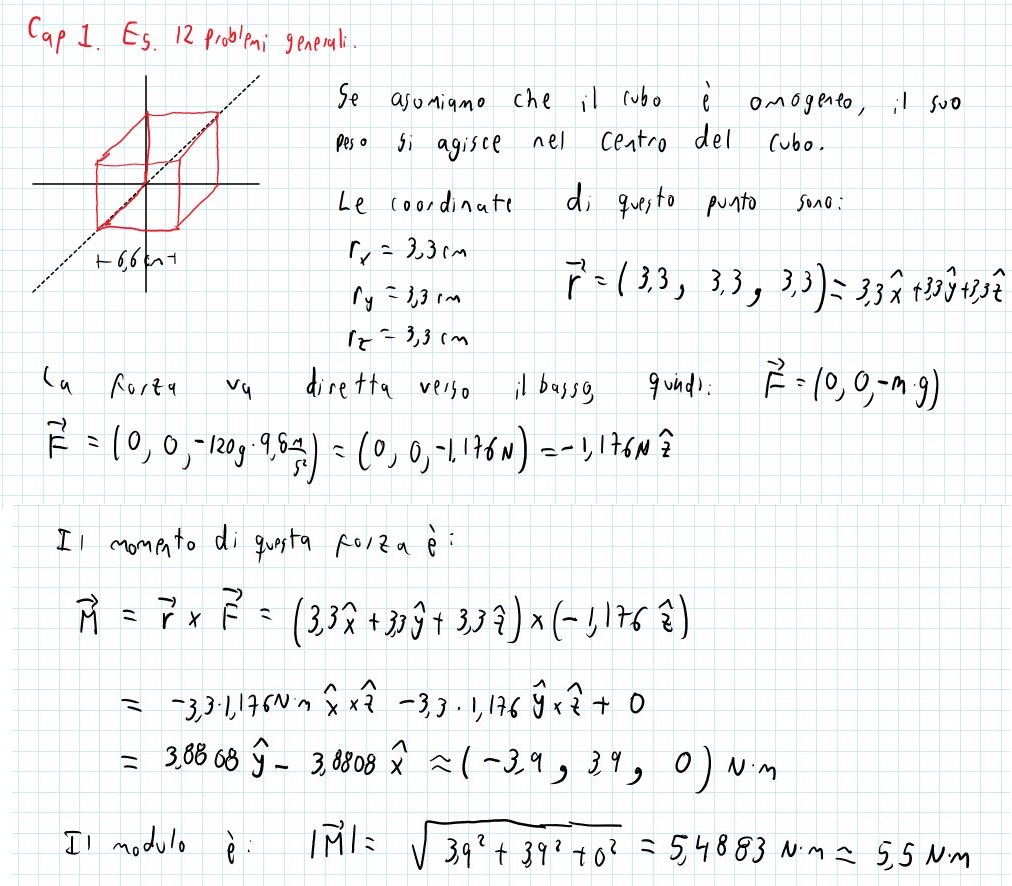 Cap 1. Es. 12 problemi generali.
Se asumiamo che il cubo è omogeneo, il suo
peso si agisce nel centro del cubo.
Le coordinate di questo punto sono:
r_x = 3,3 cm
r_y = 3,3 cm
r_z = 3,3 cm
r⃗ = (3,3, 3,3, 3,3) = 3,3 x̂ + 3,3 ŷ + 3,3 ẑ
⊢ 6,6 cm ⊣
La forza va diretta verso il basso, quindi: F⃗ = (0, 0, -m·g)
F⃗ = (0, 0, -120g · 9,8 m/s²) = (0, 0, -1,176 N) = -1,176 N ẑ
Il momento di questa forza è:
M⃗ = r⃗ × F⃗ = (3,3 x̂ + 3,3 ŷ + 3,3 ẑ) × (-1,176 ẑ)
= -3,3·1,176 N·m x̂ × ẑ -3,3·1,176 ŷ × ẑ + 0
= 3,8808 ŷ - 3,8808 x̂ ≈ (-3,9, 3,9, 0) N·m
Il modulo è: |M⃗| = √(3,9² + 3,9² + 0²) = 5,4883 N·m ≈ 5,5 N·m